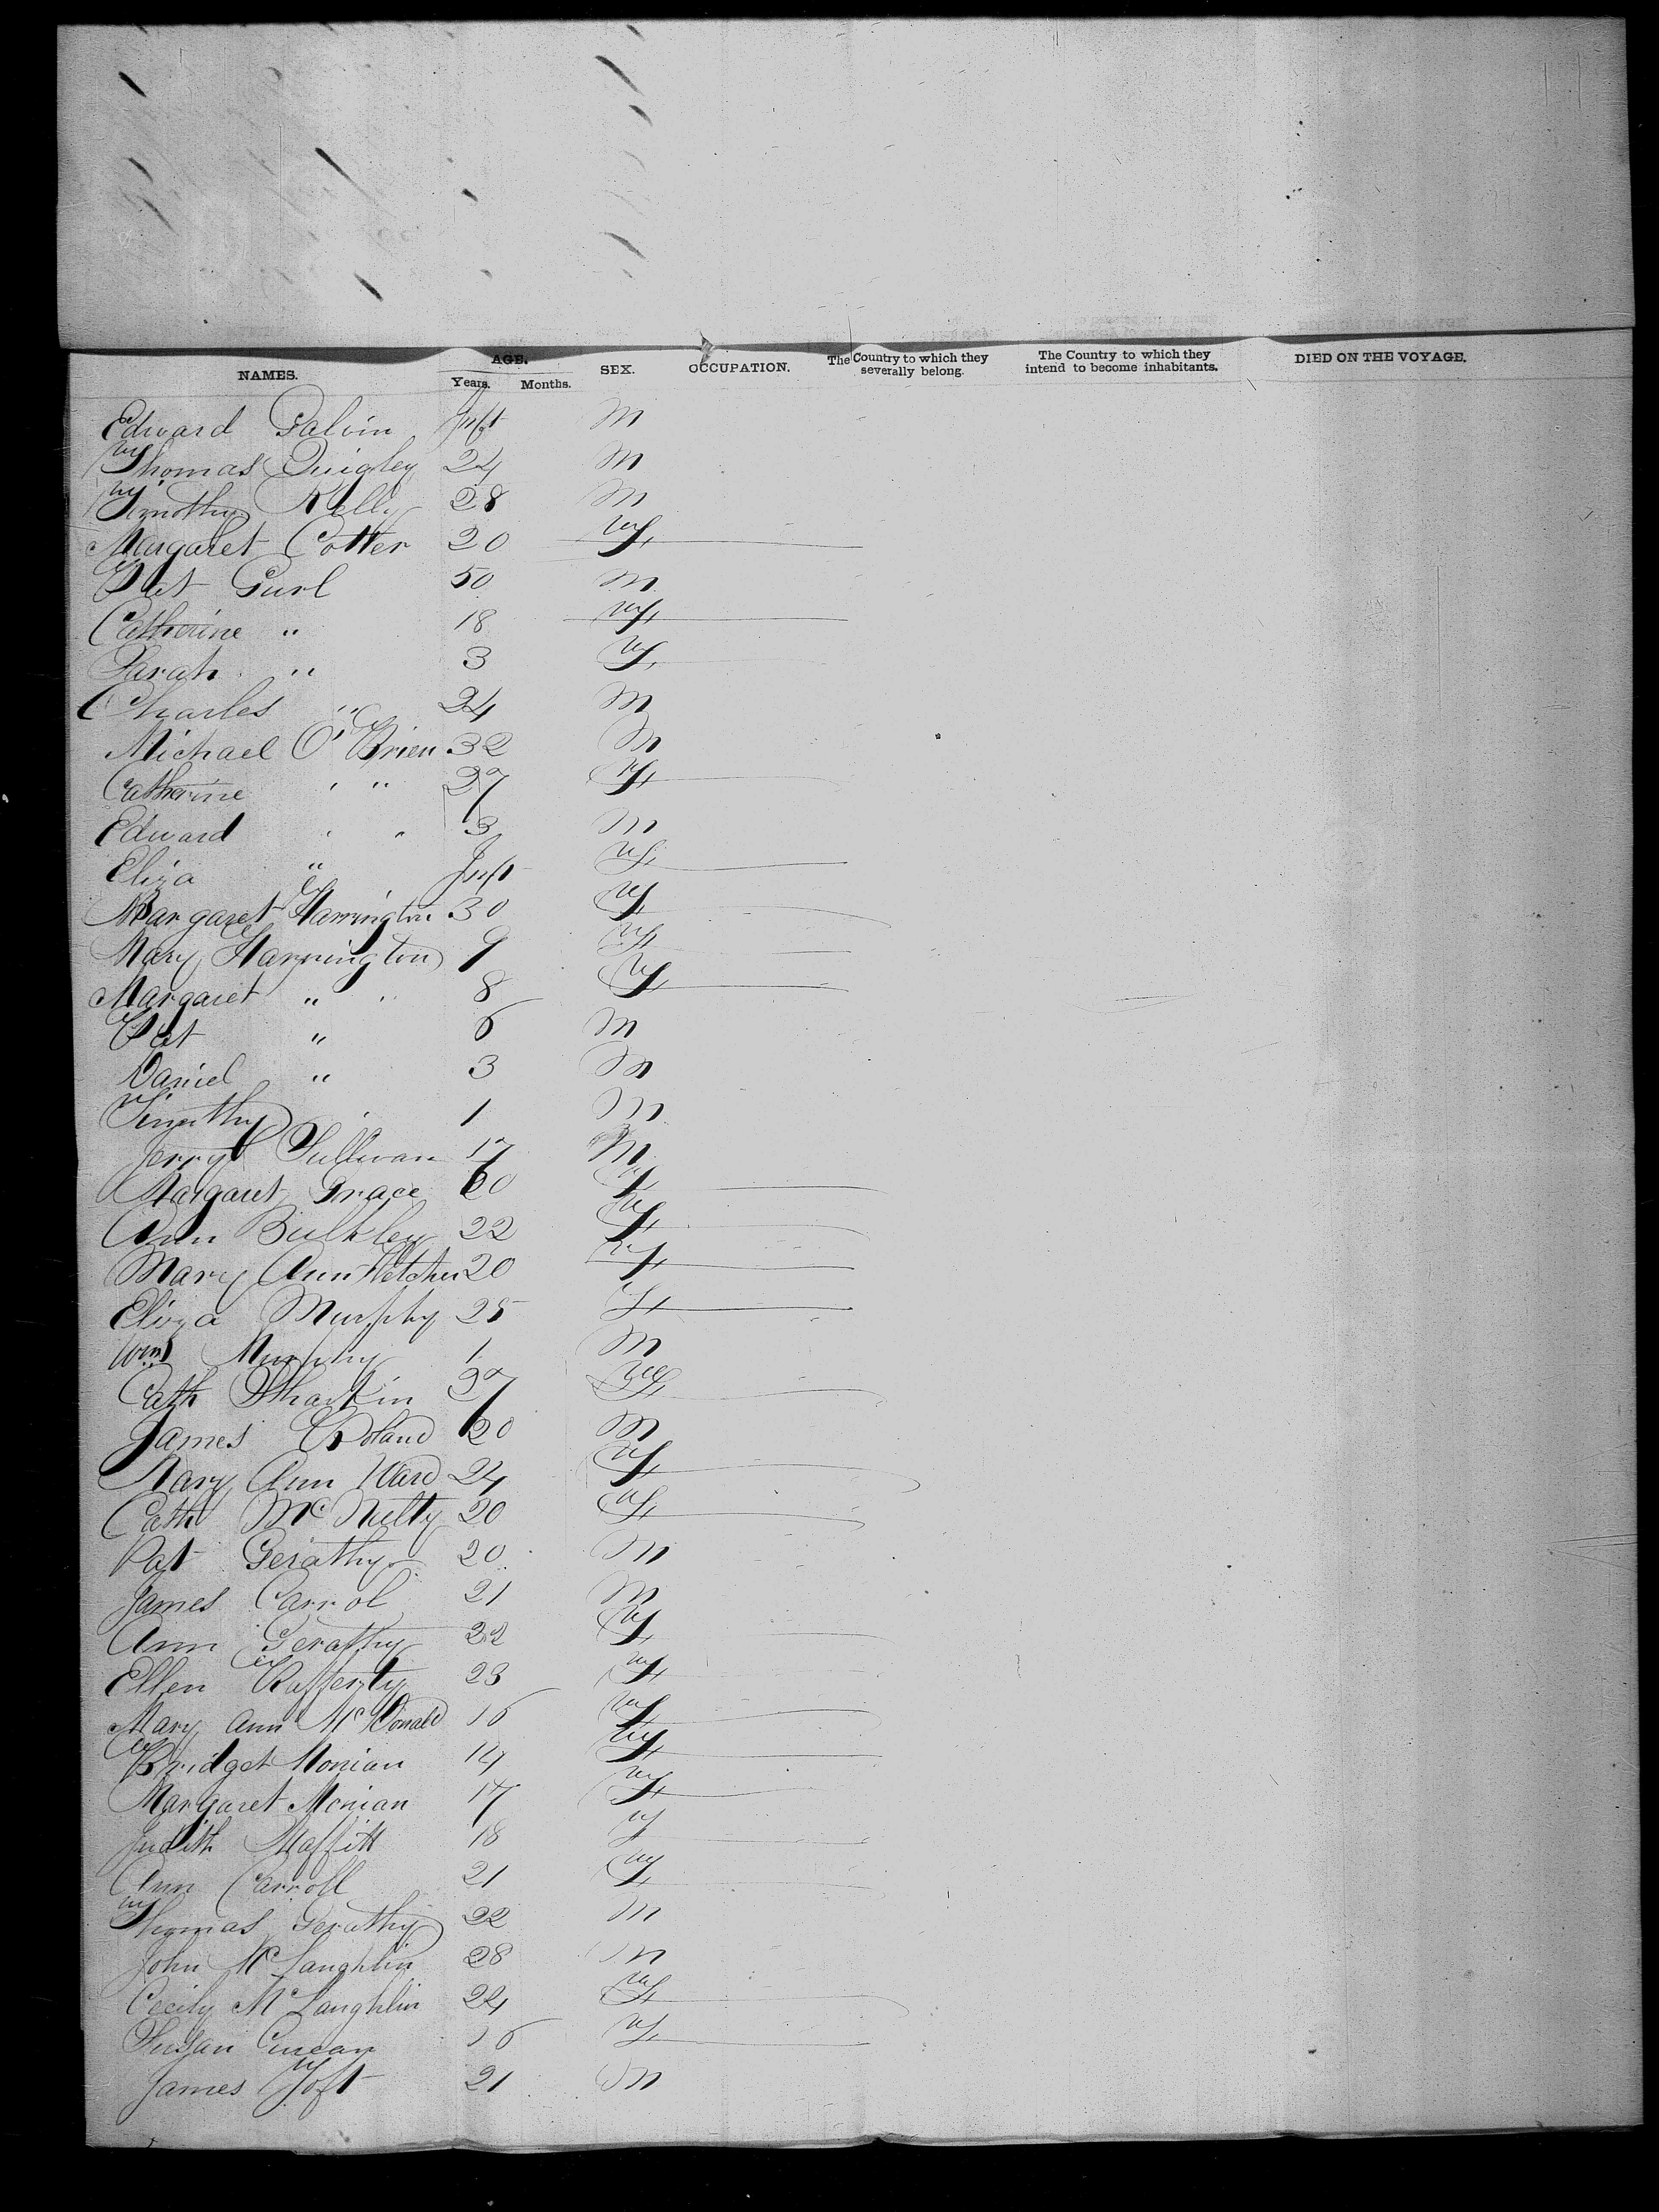 NAMES. AGE. Years. Months. SEX. OCCUPATION. The Country to which they severally belong. The Country to which they intend to become inhabitants. DIED ON THE VOYAGE.
Edward Galvin Inft M
Thomas Quigley 24 M
Timothy Kelly 28 M
Margaret Cotter 20 F
Pat Gurl 50 M
Catherine " 18 F
Sarah " 3 F
Charles " 24 M
Michael O'Brien 32 M
Catherine " " 27 F
Edward " " 3 M
Eliza " " Inft F
Margaret Harrington 30 F
Mary Harrington 9 F
Margaret " " 8 F
Pat " 6 M
Daniel " 3 M
Timothy " 1 M
Jerry Sullivan 17 M
Margaret Grace 60 F
Ann Bulkley 22 F
Mary Ann Fletcher 20 F
Eliza Murphy 25 F
Wm Murphy 1 M
Cath Sharkin 27 F
James Boland 20 M
Mary Ann Ward 24 F
Cath McNulty 20 F
Pat Gerathy 20 M
James Carrol 21 M
Ann Gerathy 22 F
Ellen Rafferty 23 F
Mary Ann McDonald 16 F
Bridget Monian 14 F
Margaret Monian 17 F
Judith Maffitt 18 F
Ann Carroll 21 F
Thomas Gerathy 22 M
John McLaughlin 28 M
Cecily McLaughlin 24 F
Susan 16 F
James Toft 21 M